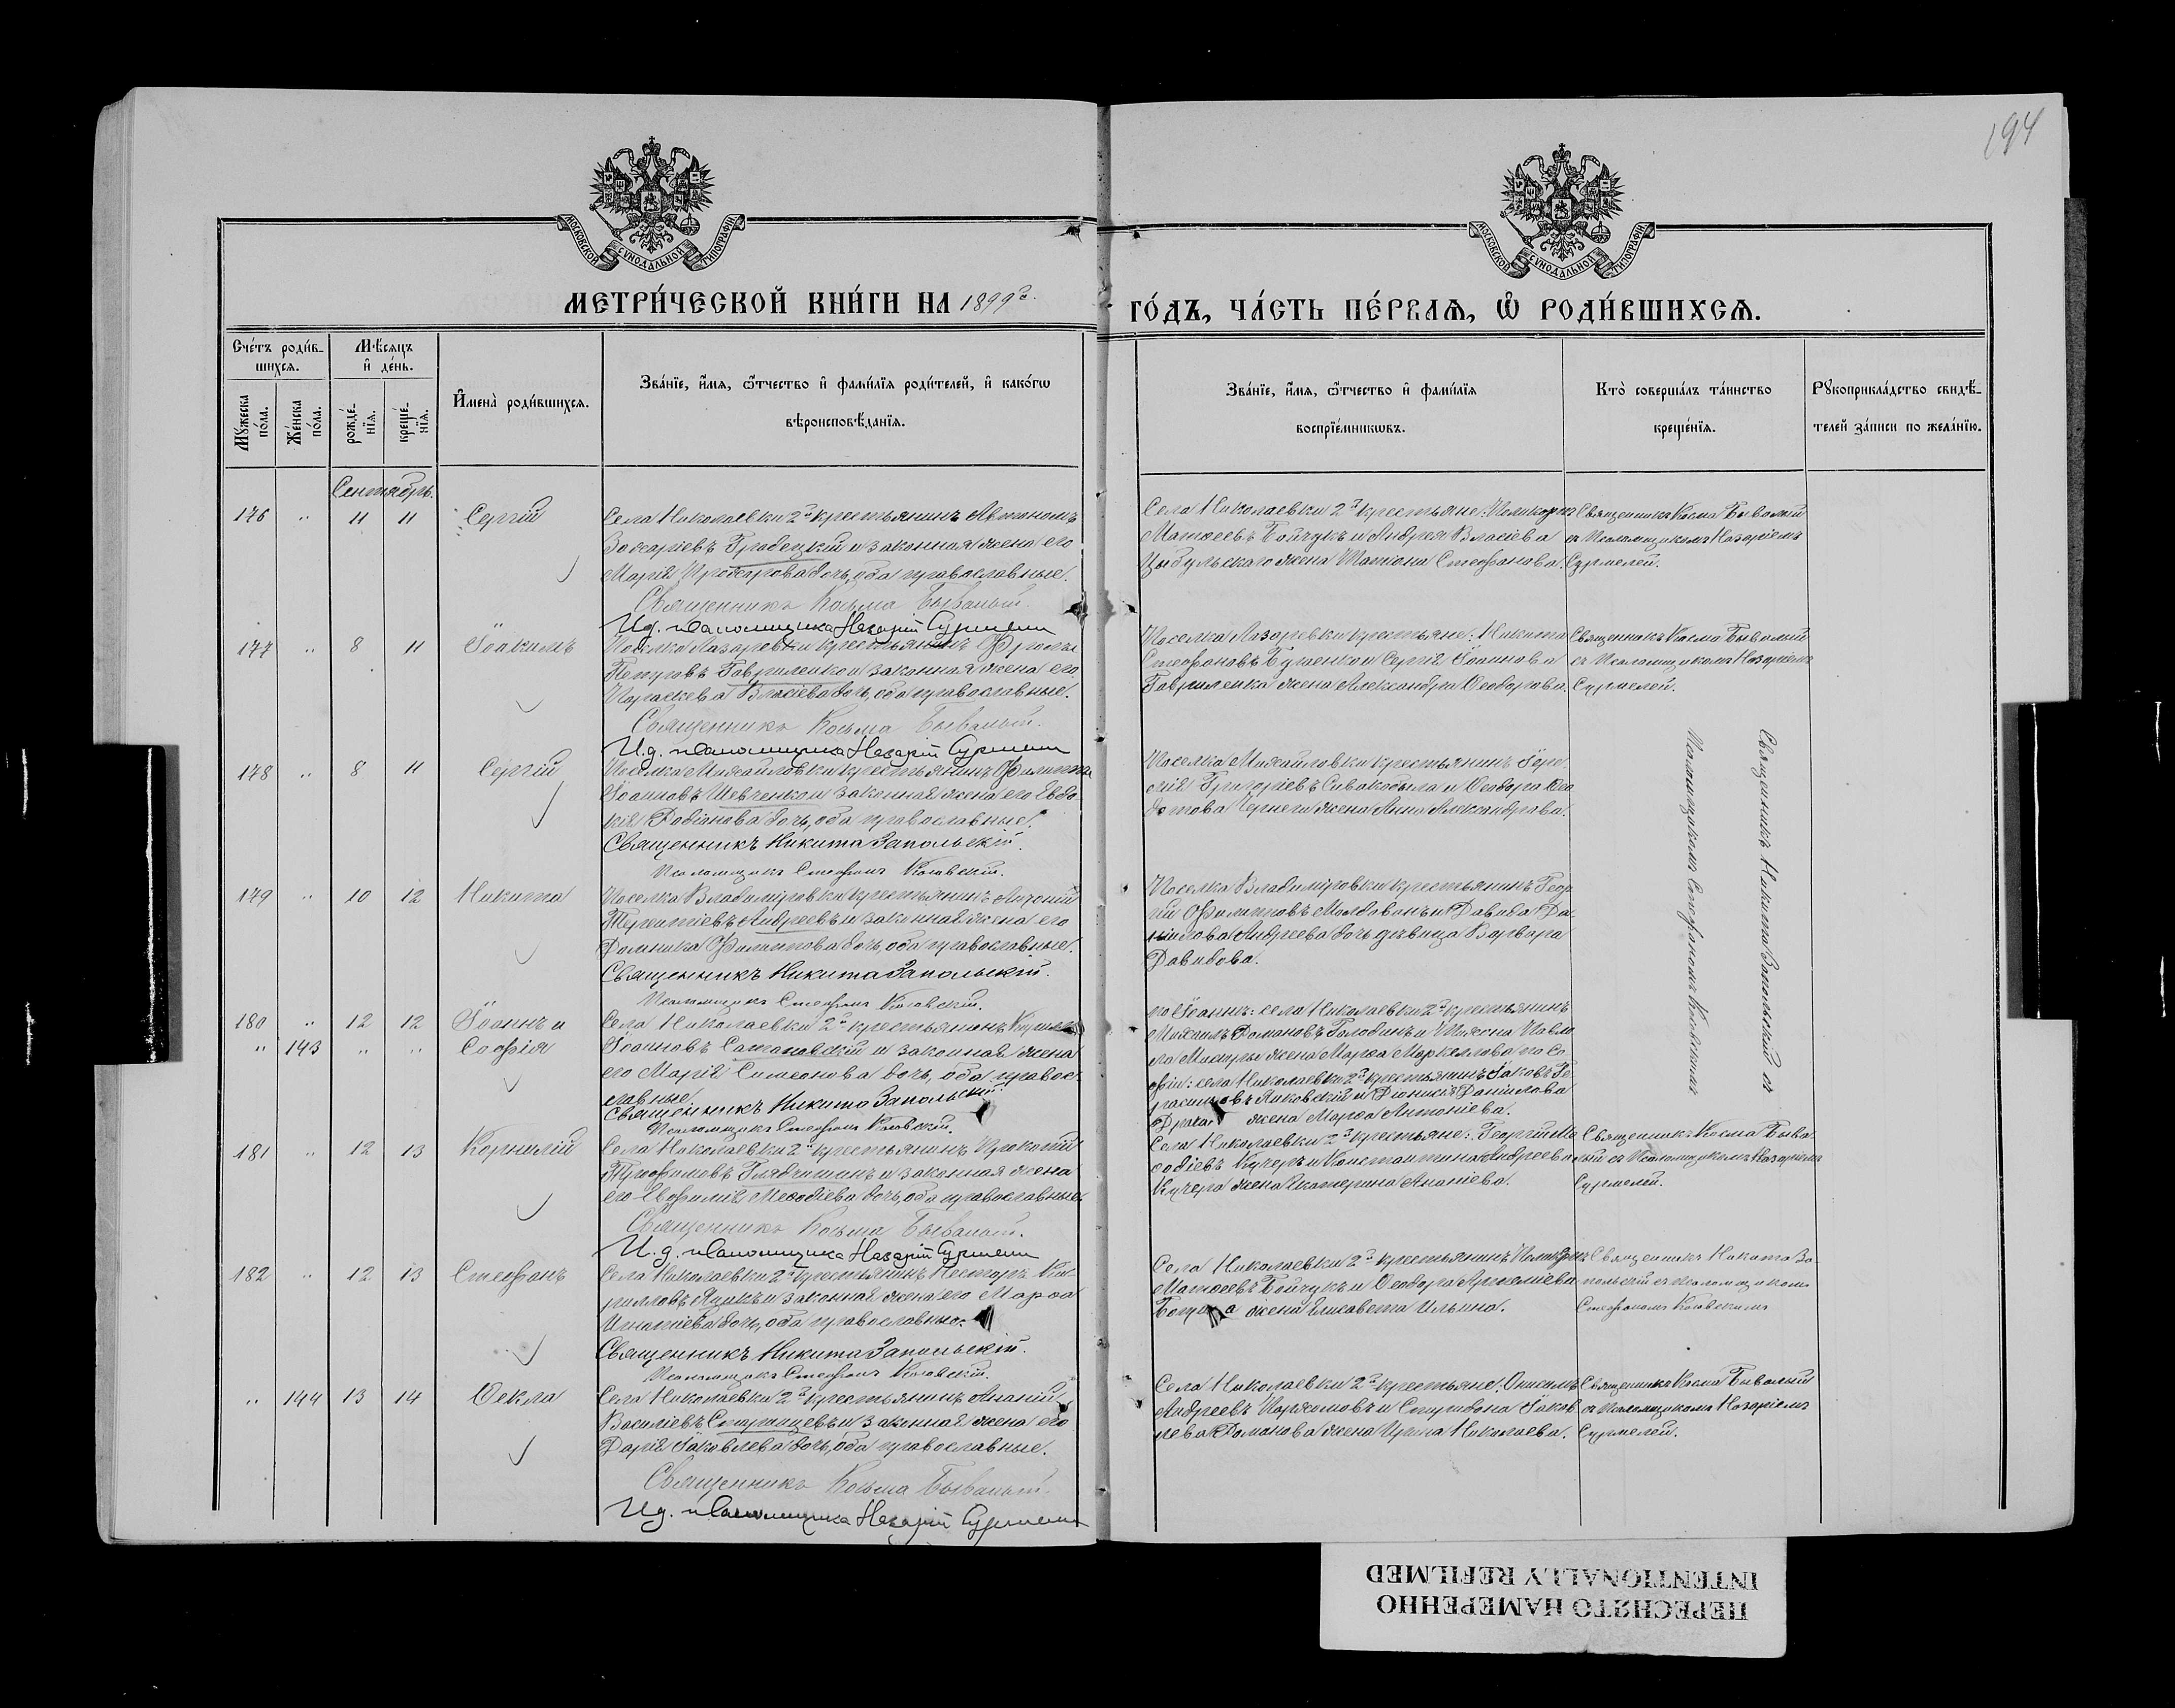 194
МОСКОВСКОЙ СѴНОДАЛЬНОЙ ТИПОГРАФІИ
МОСКОВСКОЙ СѴНОДАЛЬНОЙ ТИПОГРАФІИ
МЕТРИ́ЧЕСКОЙ КНИ́ГИ НА 1899й
ГО́ДЪ, ЧА́СТЬ ПЕ́РВАѦ, Ѡ҆ РОДИ́ВШИХСѦ.
Сче́тъ роди́в-
шихсѧ.
Мѣ́сѧцъ
и҆ де́нь.
Мꙋ́жеска по́ла.
Же́нска по́ла.
рожде́-нїѧ.
креще́-нїѧ.
И҆мена̀ роди́вшихсѧ.
Зва́нїе, и҆́мѧ, ѻ҆́тчество и҆ фами́лїѧ роди́телей, и҆ како́гѡ
вѣроисповѣ́данїѧ.
Зва́нїе, и҆́мѧ, ѻ҆́тчество и҆ фами́лїѧ
воспрїе́мникѡвъ.
Кто̀ соверша́лъ та́инство
креще́нїѧ.
Рꙋкоприкла́дство свидѣ́-
телей за́писи по жела́нїю.
Сентябрь.
176 " 11 11 Сергій
Села Николаевки 2й крестьянинъ Автономъ
Захаріевъ Гродецкій и законная жена его
Марія Прохорова дочь, оба православные.
Священникъ Косьма Бывалый.
И.д. псаломщика Назарій Сурмели
Села Николаевки 2й крестьяне: Поликарпъ
Матѳеевъ Бойчукъ и Андрея Власіева
Цыбульскаго жена Татіана Стефанова.
Священникъ Косма Бывалый
съ Псаломщикомъ Назаріемъ
Сурмелей.
177 " 8 11 Іоакимъ
Поселка Лазаревки крестьянинъ Фролъ
Петровъ Гавриленко и законная жена его
Параскева Власіева дочь, оба православные.
Священникъ Косьма Бывалый.
И.д. псаломщика Назарій Сурмели
Поселка Лазаревки крестьяне: Никита
Стефановъ Буженко и Сергія Іоаннова
Гавриленка жена Александра Ѳеодорова.
Священникъ Косма Бывалый
съ Псаломщикомъ Назаріемъ
Сурмелей.
178 " 8 11 Сергій
Поселка Михайловки крестьянинъ Филиппъ
Іоанновъ Шевченко и законная жена его Евдо
кія Родіонова дочь, оба православные.
Священникъ Никита Запольскій.
Псаломщикъ Стефанъ Косовскій.
Поселка Михайловки крестьянинъ
Григоріевъ Сивакобыла и Ѳеодора Ѳео
дотова жена Анна Александрова.
179 " 10 12 Никита
Поселка Владиміровки крестьянинъ Антоній
Терентіевъ Андреевъ и законная жена его
Домника Филиппова дочь, оба православные.
Священникъ Никита Запольскій.
Псаломщикъ Стефанъ Косовскій.
Поселка Владиміровки крестьянинъ Геор
гій Филипповъ Молдованъ и Давида Да
ніилова Андреева дочь дѣвица Варвара
Давидова.
Священникъ Никита Запольскій съ
Псаломщикомъ Стефаномъ Косовскимъ
180 " 12 12 Іоаннъ и
" 143 " " Софія
Села Николаевки 2й крестьянинъ
Іоанновъ Сатановскій и законная жена
его Марія Симеонова дочь, оба правос-
лавные.
Священникъ Никита Запольскій
Псаломщикъ Стефанъ Косовскій.
по Іоанну: села Николаевки 2й крестьянинъ
Михаилъ Романовъ Голобинъ и Павло
ва жена Марѳа Маркеллова по Со
фіи: села Николаевки 2й крестьянинъ Іаковъ Ге
расимовъ Янковскій и Діонисія Даніилова
жена Марѳа Антоніева.
181 " 12 13 Корнилій
Села Николаевки 2й крестьянинъ Прокопій
Трофимовъ и законная жена
его Евфимія Меѳодіева дочь, оба православные.
Священникъ Косьма Бывалый.
И.д. псаломщика Назарій Сурмели
Села Николаевки 2й крестьяне: Георгій Ме
ѳодіевъ Кучеръ и Константина Андреева
Кучера жена Екатерина Ананіева.
Священникъ Косма Быва
лый съ Псаломщикомъ Назаріемъ
Сурмелей.
182 " 12 13 Стефанъ
Села Николаевки 2й крестьянинъ Несторъ Ки-
рилловъ Яцикъ и законная жена его Марѳа
Игнатіева дочь, оба православные.
Священникъ Никита Запольскій.
Псаломщикъ Стефанъ Косовскій.
Села Николаевки 2й крестьянинъ Поликарпъ
Матѳеевъ Бойчукъ и Ѳеодора Артеміева
жена Елисавета Ильина.
Священникъ Никита За-
польскій съ Псаломщикомъ
Стефаномъ Косовскимъ
" 144 13 14 Ѳекла
Села Николаевки 2й крестьянинъ Ананій
Василіевъ и законная жена его
Дарія Іаковлева дочь, оба православные.
Священникъ Косьма Бывалый.
И.д. псаломщика Назарій Сурмели
Села Николаевки 2й крестьяне: Онисимъ
Андреевъ Пархомовъ и Спиридона Іаков
лева Романова жена Ирина Николаева.
Священникъ Косма Бывалый
съ Псаломщикомъ Назаріемъ
Сурмелей.
ПЕРЕСНЯТО НАМЕРЕННО
INTENTIONALLY REFILMED